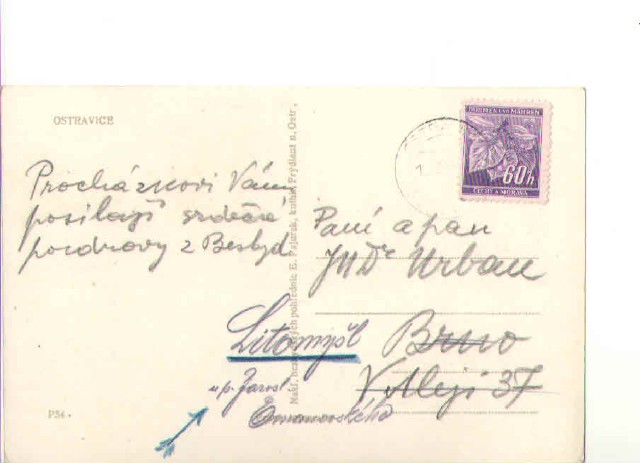 OSTRAVICE
Procházkovi Vám
posílají srdečné
pozdravy z Beskyd
P34
Nakl. beskydských pohlednic E. Pajurek, knihař, Frýdlant n. Ostr.
BÖHMEN UND MÄHREN
60h
ČECHY A MORAVA
Paní a pan
JUDr Urban
Brno
V Aleji 37
Litomyšl
u p. Jarosl